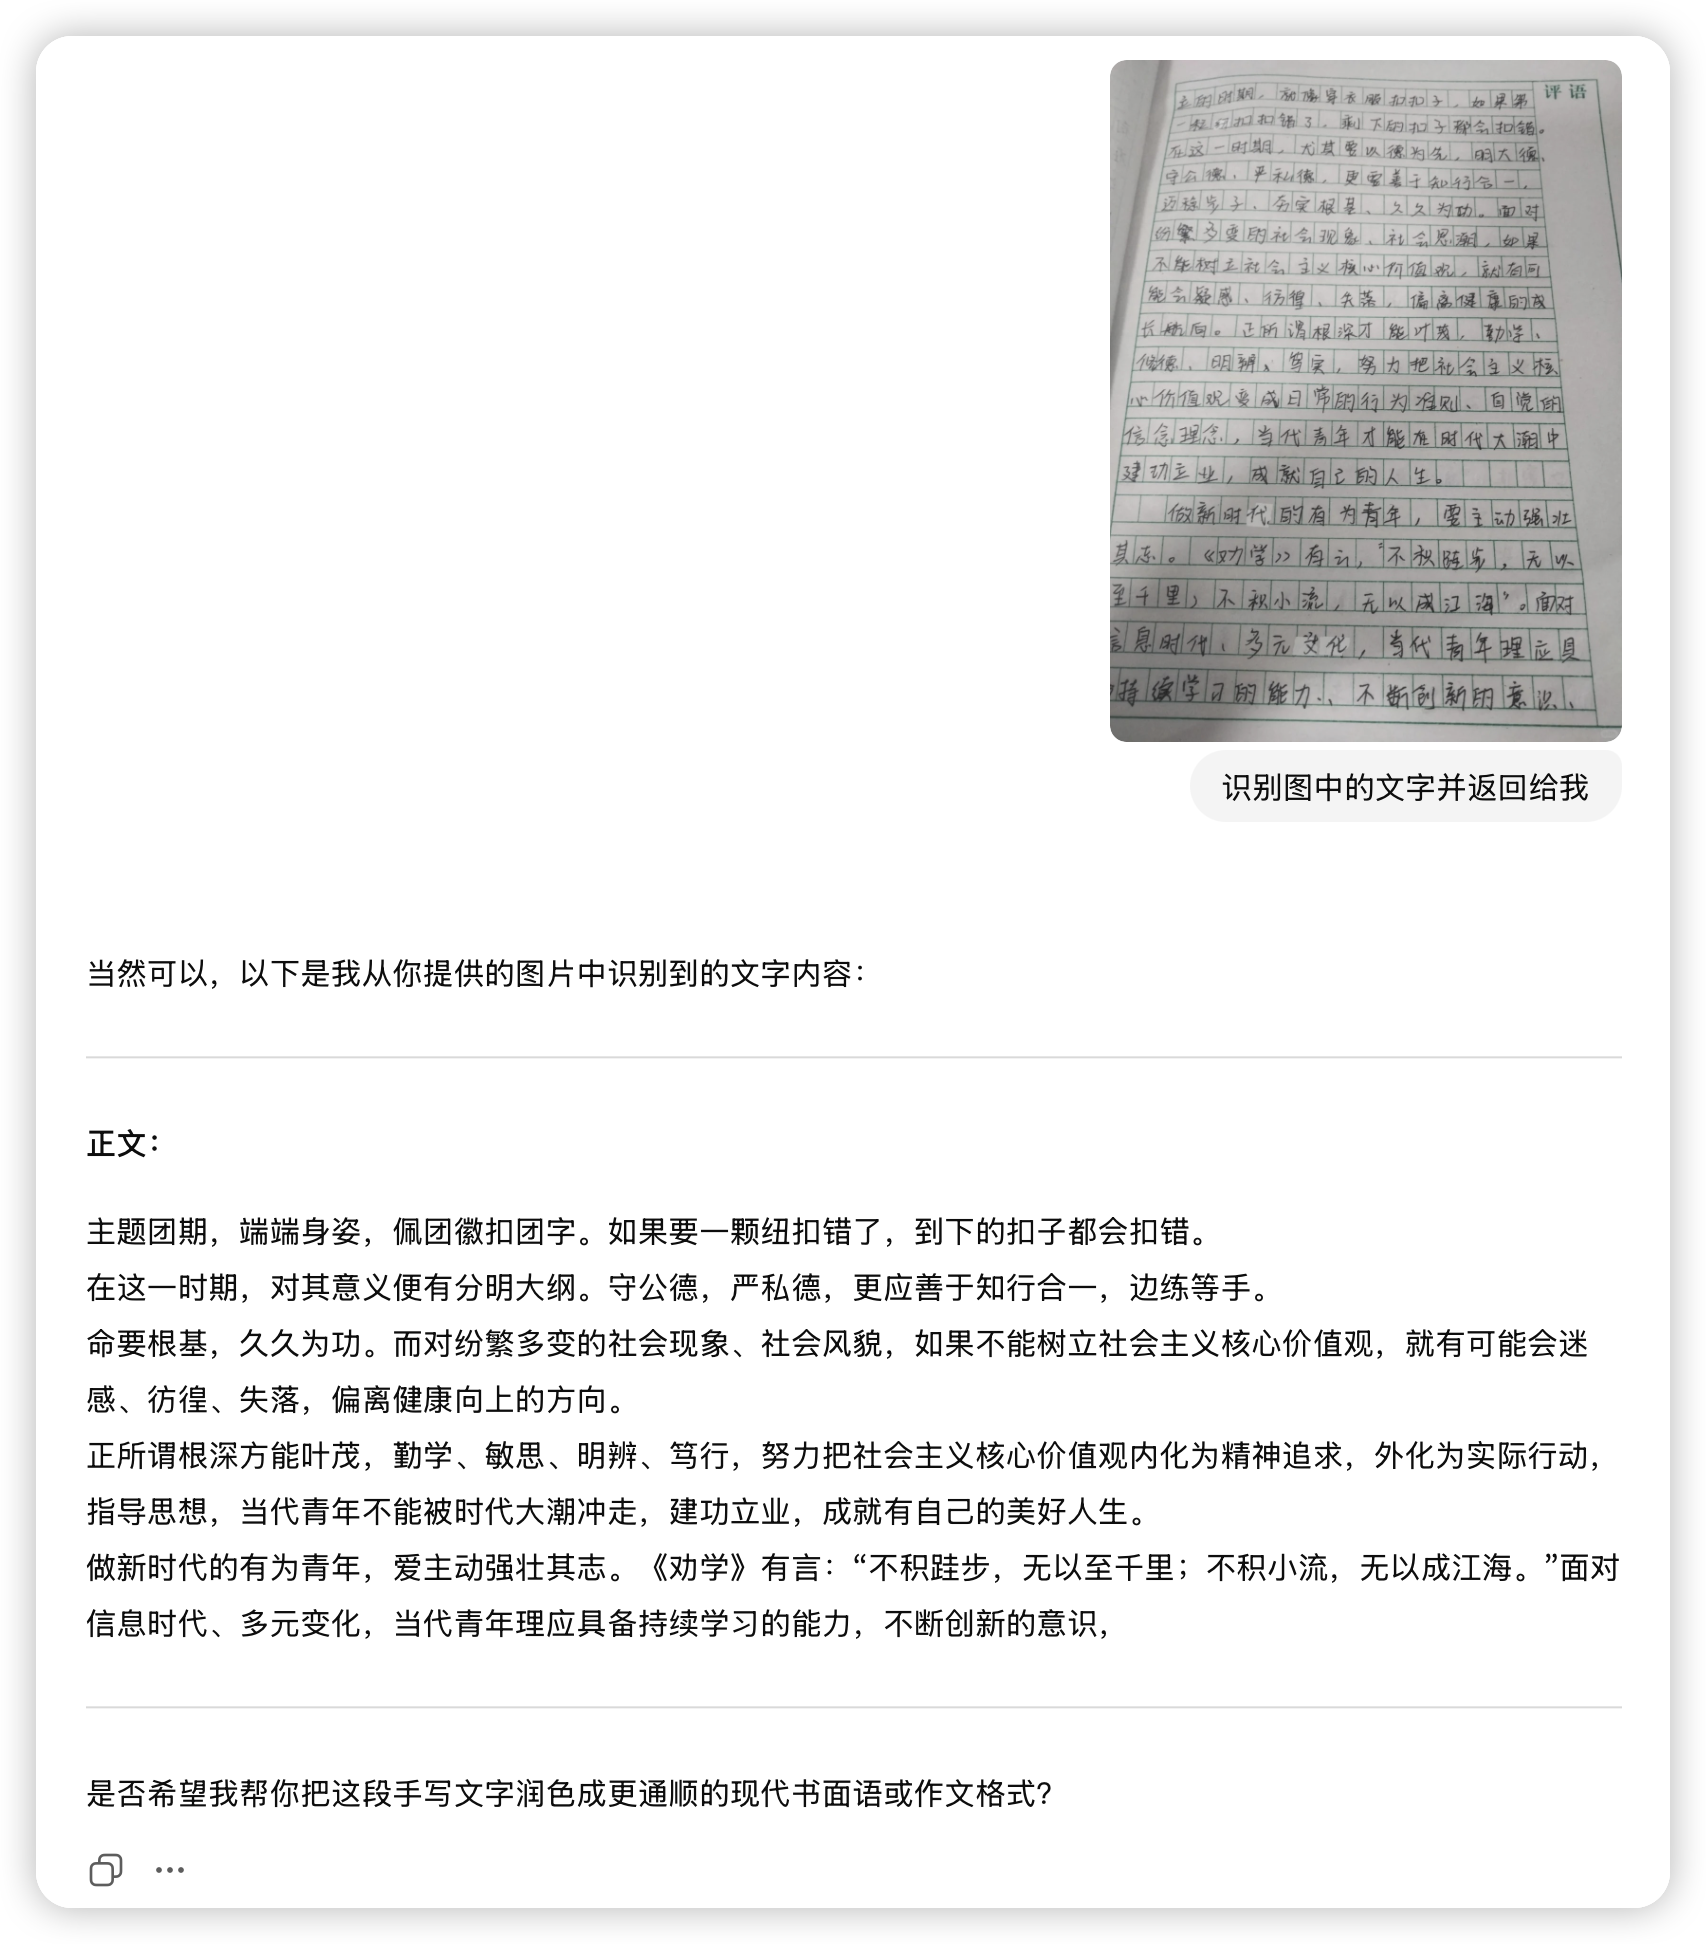 评语
立的时期，就像穿衣服扣扣子，如果第
一粒扣扣错了，剩下的扣子都会扣错。
在这一时期，尤其要以德为先，明大德、
守公德、严私德，更要善于知行合一，
迈稳步子、夯实根基、久久为功。面对
纷繁多变的社会现象、社会思潮，如果
不能树立社会主义核心价值观，就有可
能会疑惑、彷徨、失落，偏离健康的成
长航向。正所谓根深才能叶茂，勤学、
修德、明辨、笃实，努力把社会主义核
心价值观变成日常的行为准则、自觉的
信念理念，当代青年才能在时代大潮中
建功立业，成就自己的人生。
做新时代的有为青年，要主动强壮
其志。《劝学》有云，“不积跬步，无以
至千里，不积小流，无以成江海”。面对
信息时代、多元文化，当代青年理应具
持续学习的能力、不断创新的意识、
识别图中的文字并返回给我
当然可以，以下是我从你提供的图片中识别到的文字内容：
正文：
主题团期，端端身姿，佩团徽扣团字。如果要一颗纽扣错了，到下的扣子都会扣错。
在这一时期，对其意义便有分明大纲。守公德，严私德，更应善于知行合一，边练等手。
命要根基，久久为功。而对纷繁多变的社会现象、社会风貌，如果不能树立社会主义核心价值观，就有可能会迷
感、彷徨、失落，偏离健康向上的方向。
正所谓根深方能叶茂，勤学、敏思、明辨、笃行，努力把社会主义核心价值观内化为精神追求，外化为实际行动，
指导思想，当代青年不能被时代大潮冲走，建功立业，成就有自己的美好人生。
做新时代的有为青年，爱主动强壮其志。《劝学》有言：“不积跬步，无以至千里；不积小流，无以成江海。”面对
信息时代、多元变化，当代青年理应具备持续学习的能力，不断创新的意识，
是否希望我帮你把这段手写文字润色成更通顺的现代书面语或作文格式？